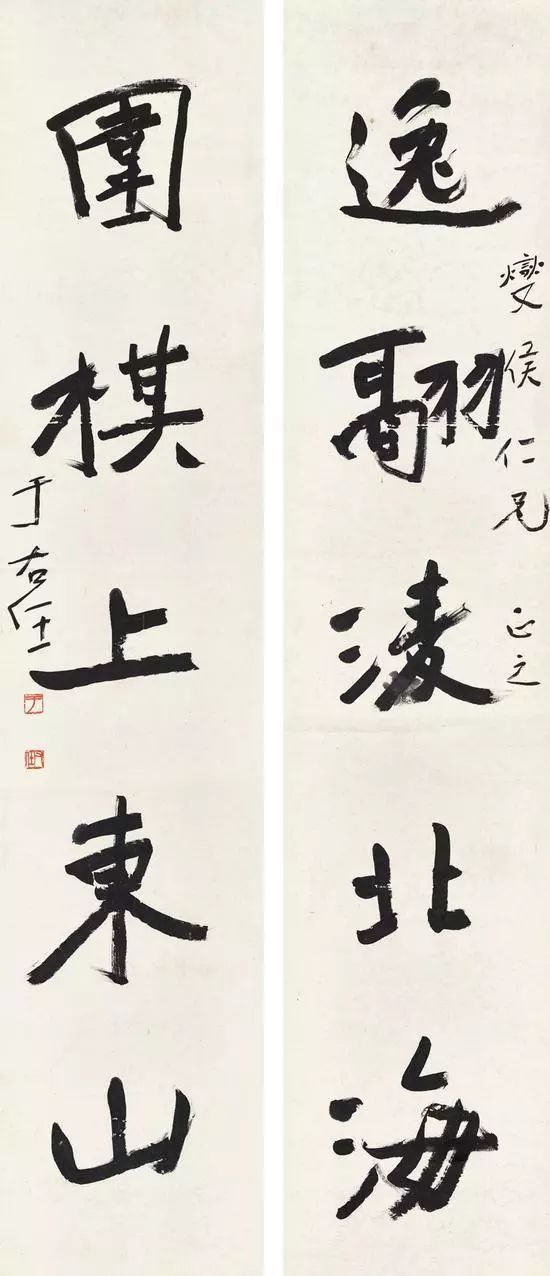 燮侯仁兄正之
逸翮淩北海
圍棋上東山
于右任